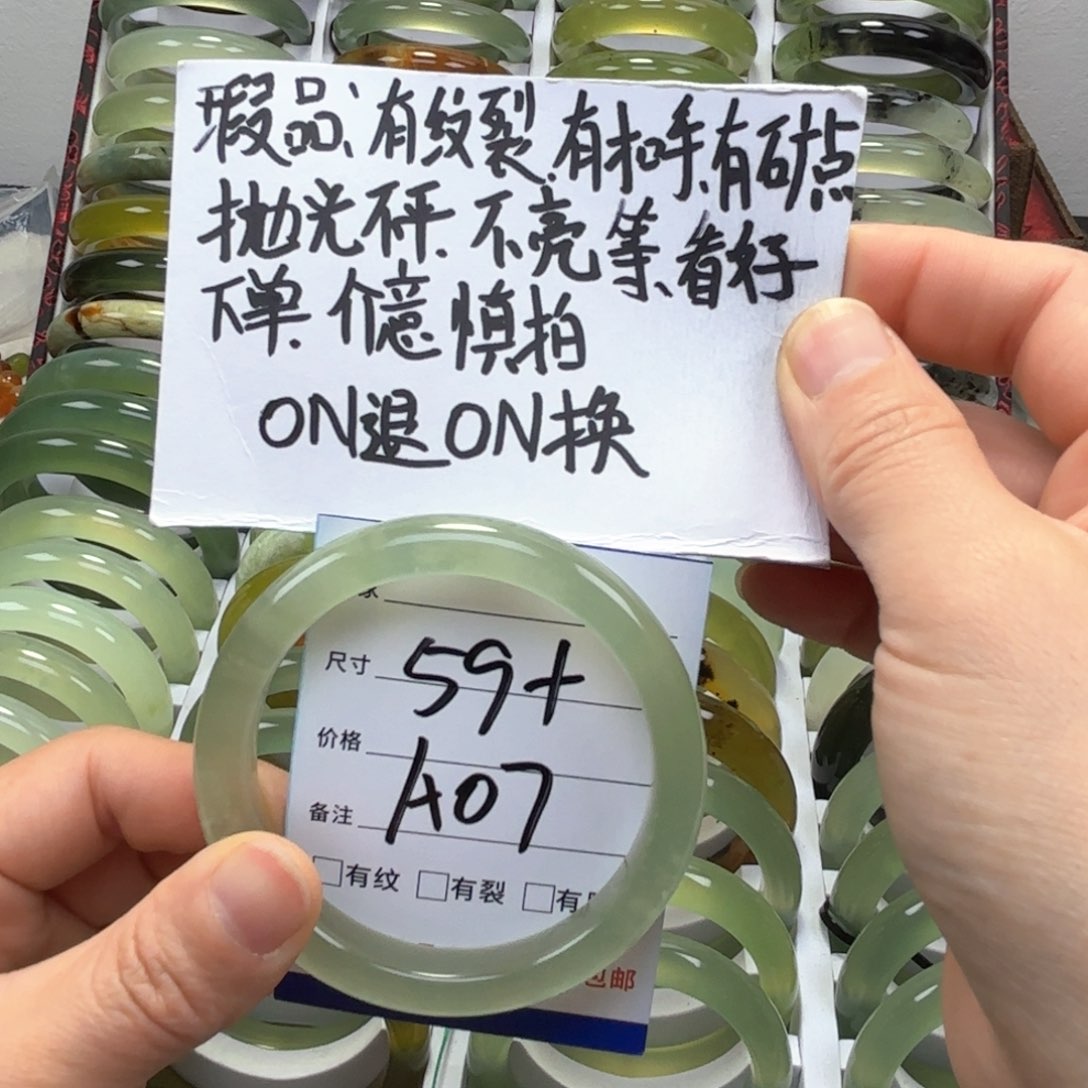 瑕品、有纹裂、有扣手、有矿点
抛光不平、不亮等、看好
下单、介意慎拍
ON退ON换
尺寸 59+
价格
备注 A07
□有纹 □有裂 □有
包邮